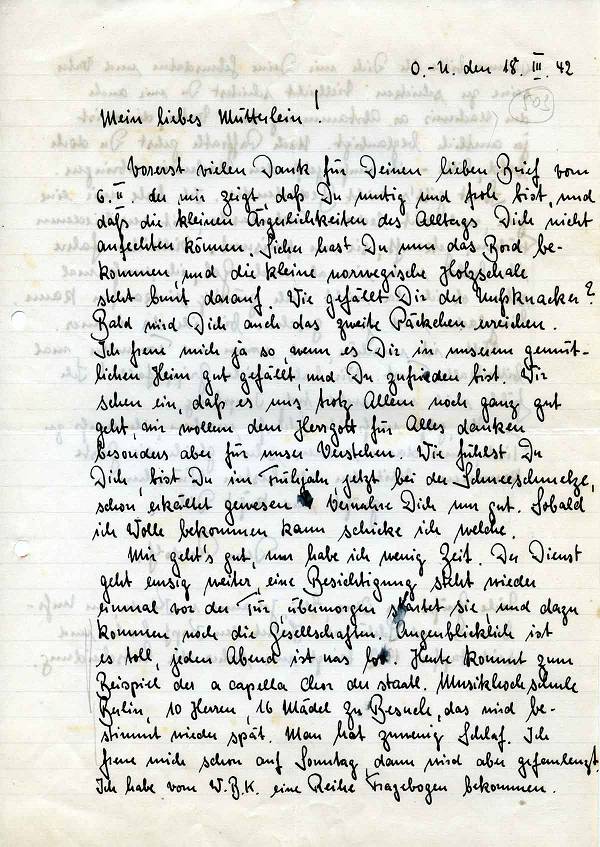 O.-U. den 18. III. 42
103
Mein liebes Mütterlein!
Vorerst vielen Dank für Deinen lieben Brief vom
6. II der mir zeigt, daß Du mutig und froh bist, und
daß die kleinen Ärgerlichkeiten des Alltags Dich nicht
anfechten können. Sicher hast Du nun das Bord be-
kommen, und die kleine norwegische Holzschale
steht bunt darauf. Wie gefällt Dir der Nußknacker?
Bald wird Dich auch das zweite Päckchen erreichen.
Ich freue mich ja so, wenn es Dir in unserem gemüt-
lichen Heim gut gefällt, und Du zufrieden bist. Wir
sehen ein, daß es uns trotz Allem noch ganz gut
geht, wir wollen dem Herrgott für Alles danken
besonders aber für unser Verstehen. Wie fühlst Du
Dich, bist Du im Frühjahr jetzt bei der Schneeschmelze,
schon erkältet gewesen Verwahre Dich nur gut. Sobald
ich Wolle bekommen kann schicke ich welche.
Mir geht's gut, nur habe ich wenig Zeit. Der Dienst
geht emsig weiter, eine Besichtigung steht wieder
einmal vor der Tür, übermorgen startet sie, und dazu
kommen noch die Gesellschaften. Augenblicklich ist
es toll, jeden Abend ist was los. Heute kommt zum
Beispiel der a capella Chor der staatl. Musikhochschule
Berlin, 10 Herren, 16 Mädel zu Besuch, das wird be-
stimmt wieder spät. Man hat zuwenig Schlaf. Ich
freue mich schon auf Sonntag dann wird aber gefaulenzt.
Ich habe vom W.B.K. eine Reihe Fragebogen bekommen.